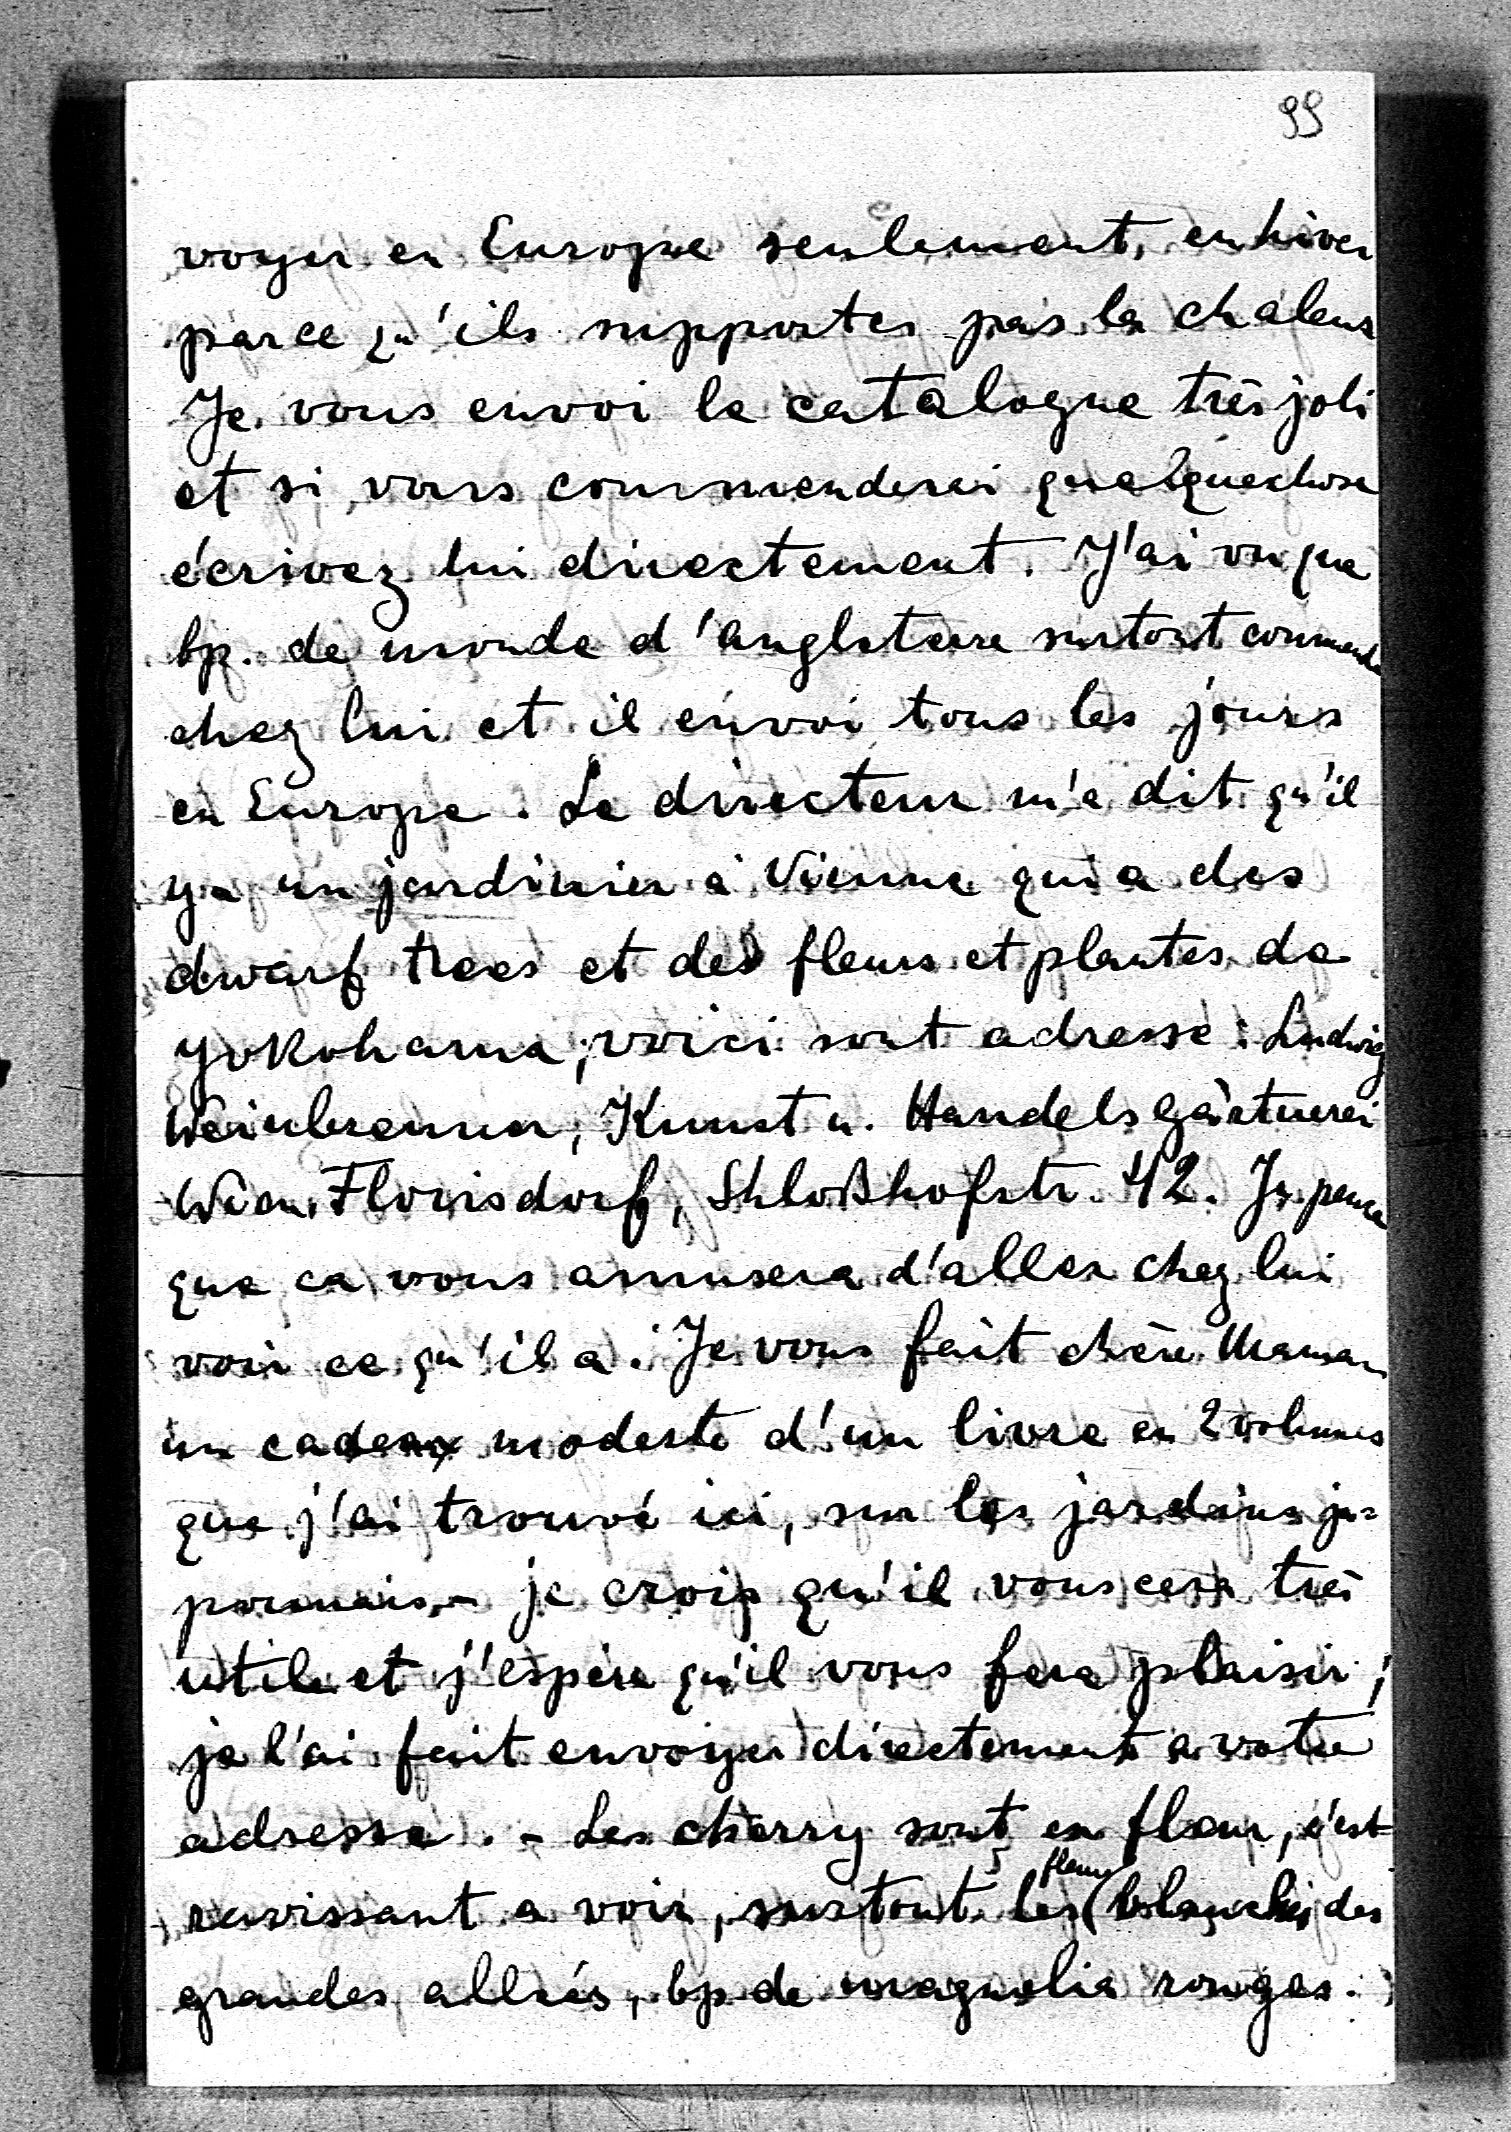 99
voyer en Europe seulement, en hiver
parce qu'ils supportes pas la chaleur
Je vous envoi le catalogue très joli
et si vous commenderei quelquechose
écrivez lui directement. J'ai vu que
bp. de monde d'angleterre surtout commende
chez lui et il envoi tous les jours
en Europe. Le directeur m'a dit qu'il
y a un jardinier à Vienne qui a des
dwarf trees et des fleurs et plantes de
Yokohama; voici sont adresse: Ludwig
Weinbrenner, Kunst u. Handelsgärtnerei
Wien, Florisdorf, Shloßhofstr. 42. Je pense
que ca vous amusera d'aller chez lui
voir ce qu'il a. Je vous fait chère Maman
un cadeaux modeste d'un livre en 2 volumes
que j'ai trouvé ici, sur les jardins ja=
ponnais, - je crois qu'il vous cera très
utile et j'espère qu'il vous fera plaisir;
je l'ai fait envoyer directement a votre
adresse. - Les cherry sont en fleur, c'est
ravissant a voir, surtout les (fleurs blanches, des
grandes allées, bp. de magnolia rouges.